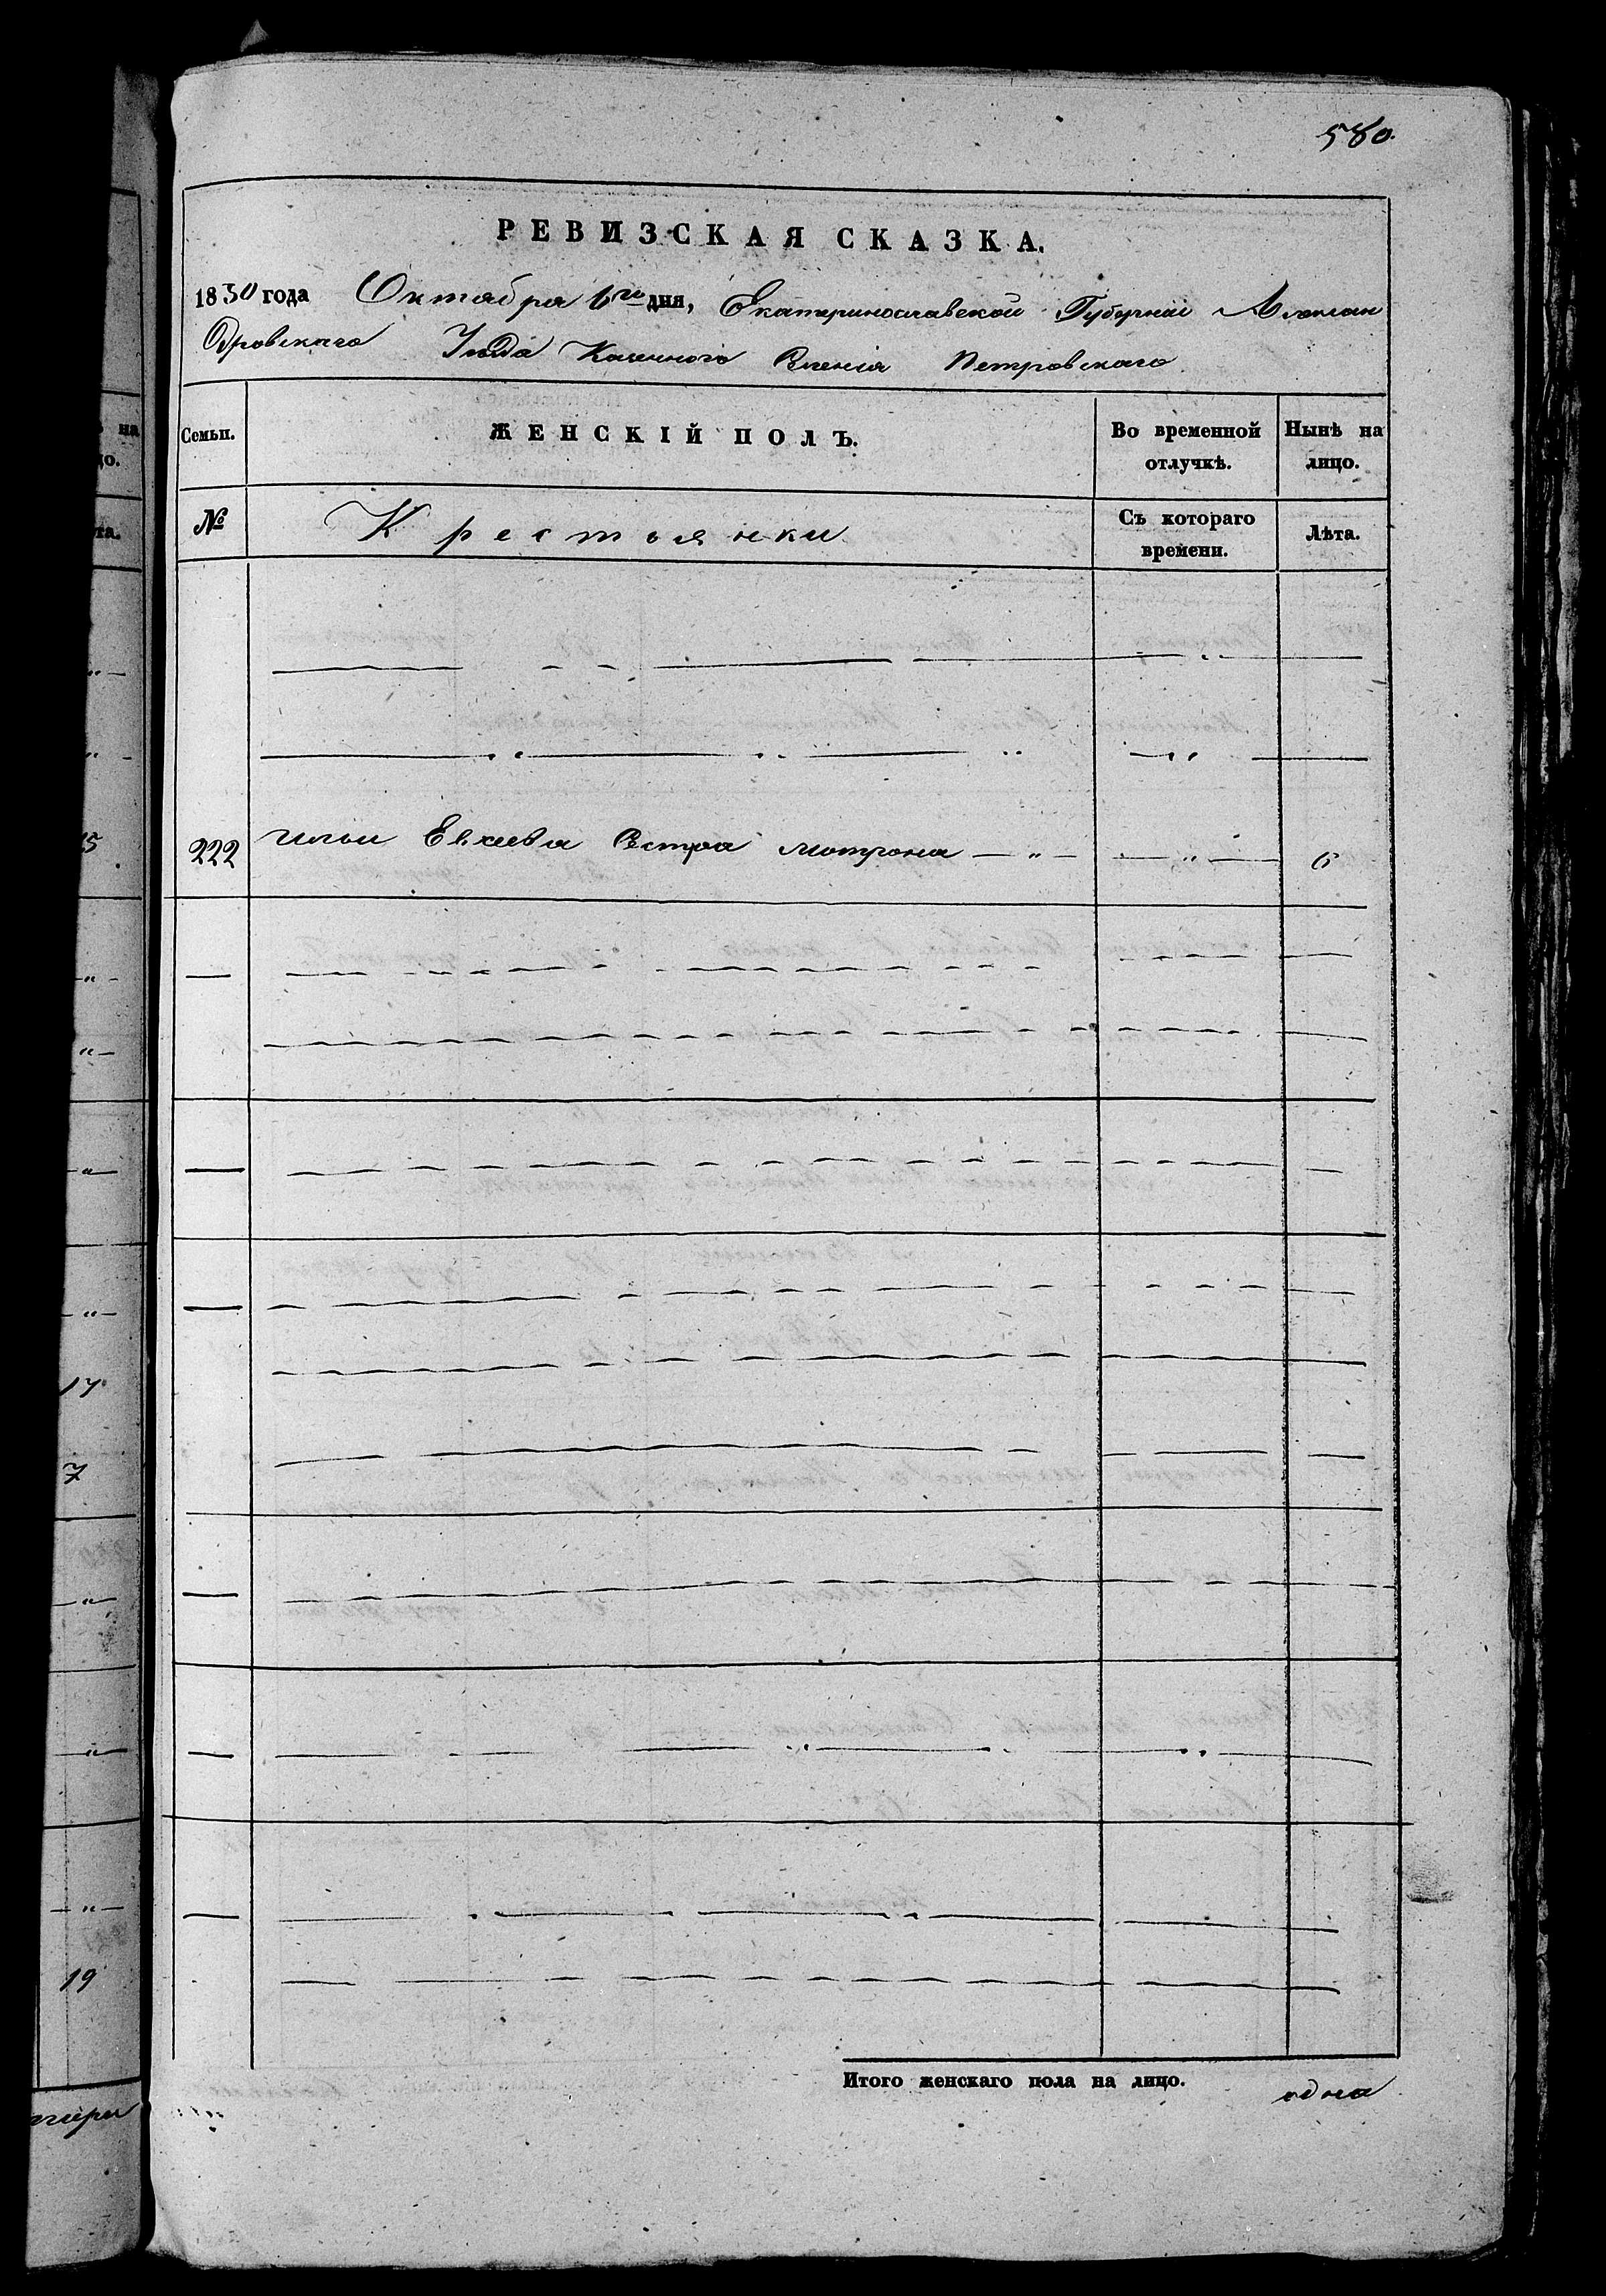 580.
РЕВИЗСКАЯ СКАЗКА.
1850 года Октября 6го дня, Екатеринославской Губерніи Алексан
Дровскаго Уезда Казеннаго Селенія Петровскаго.
Семьи.
ЖЕНСКІЙ ПОЛЪ.
Во временной отлучкѣ.
Нынѣ на лицо.
№
Крестьянки
Съ котораго времени.
Лѣта.
222 Ильи Евсеева Сестра Мотрона — „ — — „ — 6
Итого женскаго пола на лицо. одна
на
та.
15
17
7
19